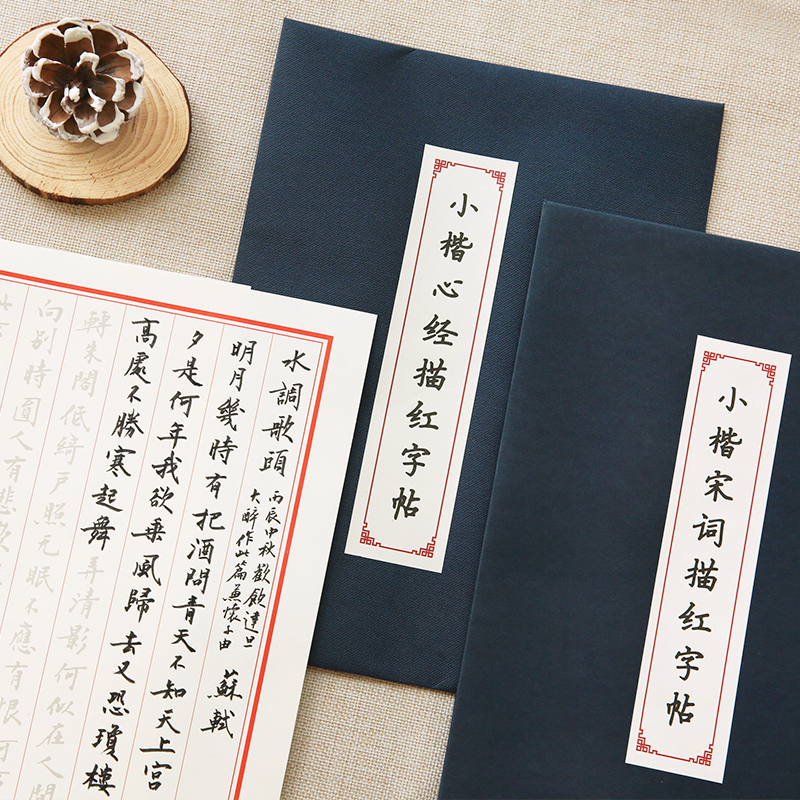 小楷心经描红字帖
小楷宋词描红字帖
水調歌頭
丙辰中秋歡飲達旦
大醉作此篇兼懷子由
蘇軾
明月幾時有把酒問青天不知天上宮
夕是何年我欲乘風歸去又恐瓊樓
高處不勝寒起舞弄清影何似在人間
轉朱閣低綺戶照无眠不應有恨何
向別時圓人有悲歡